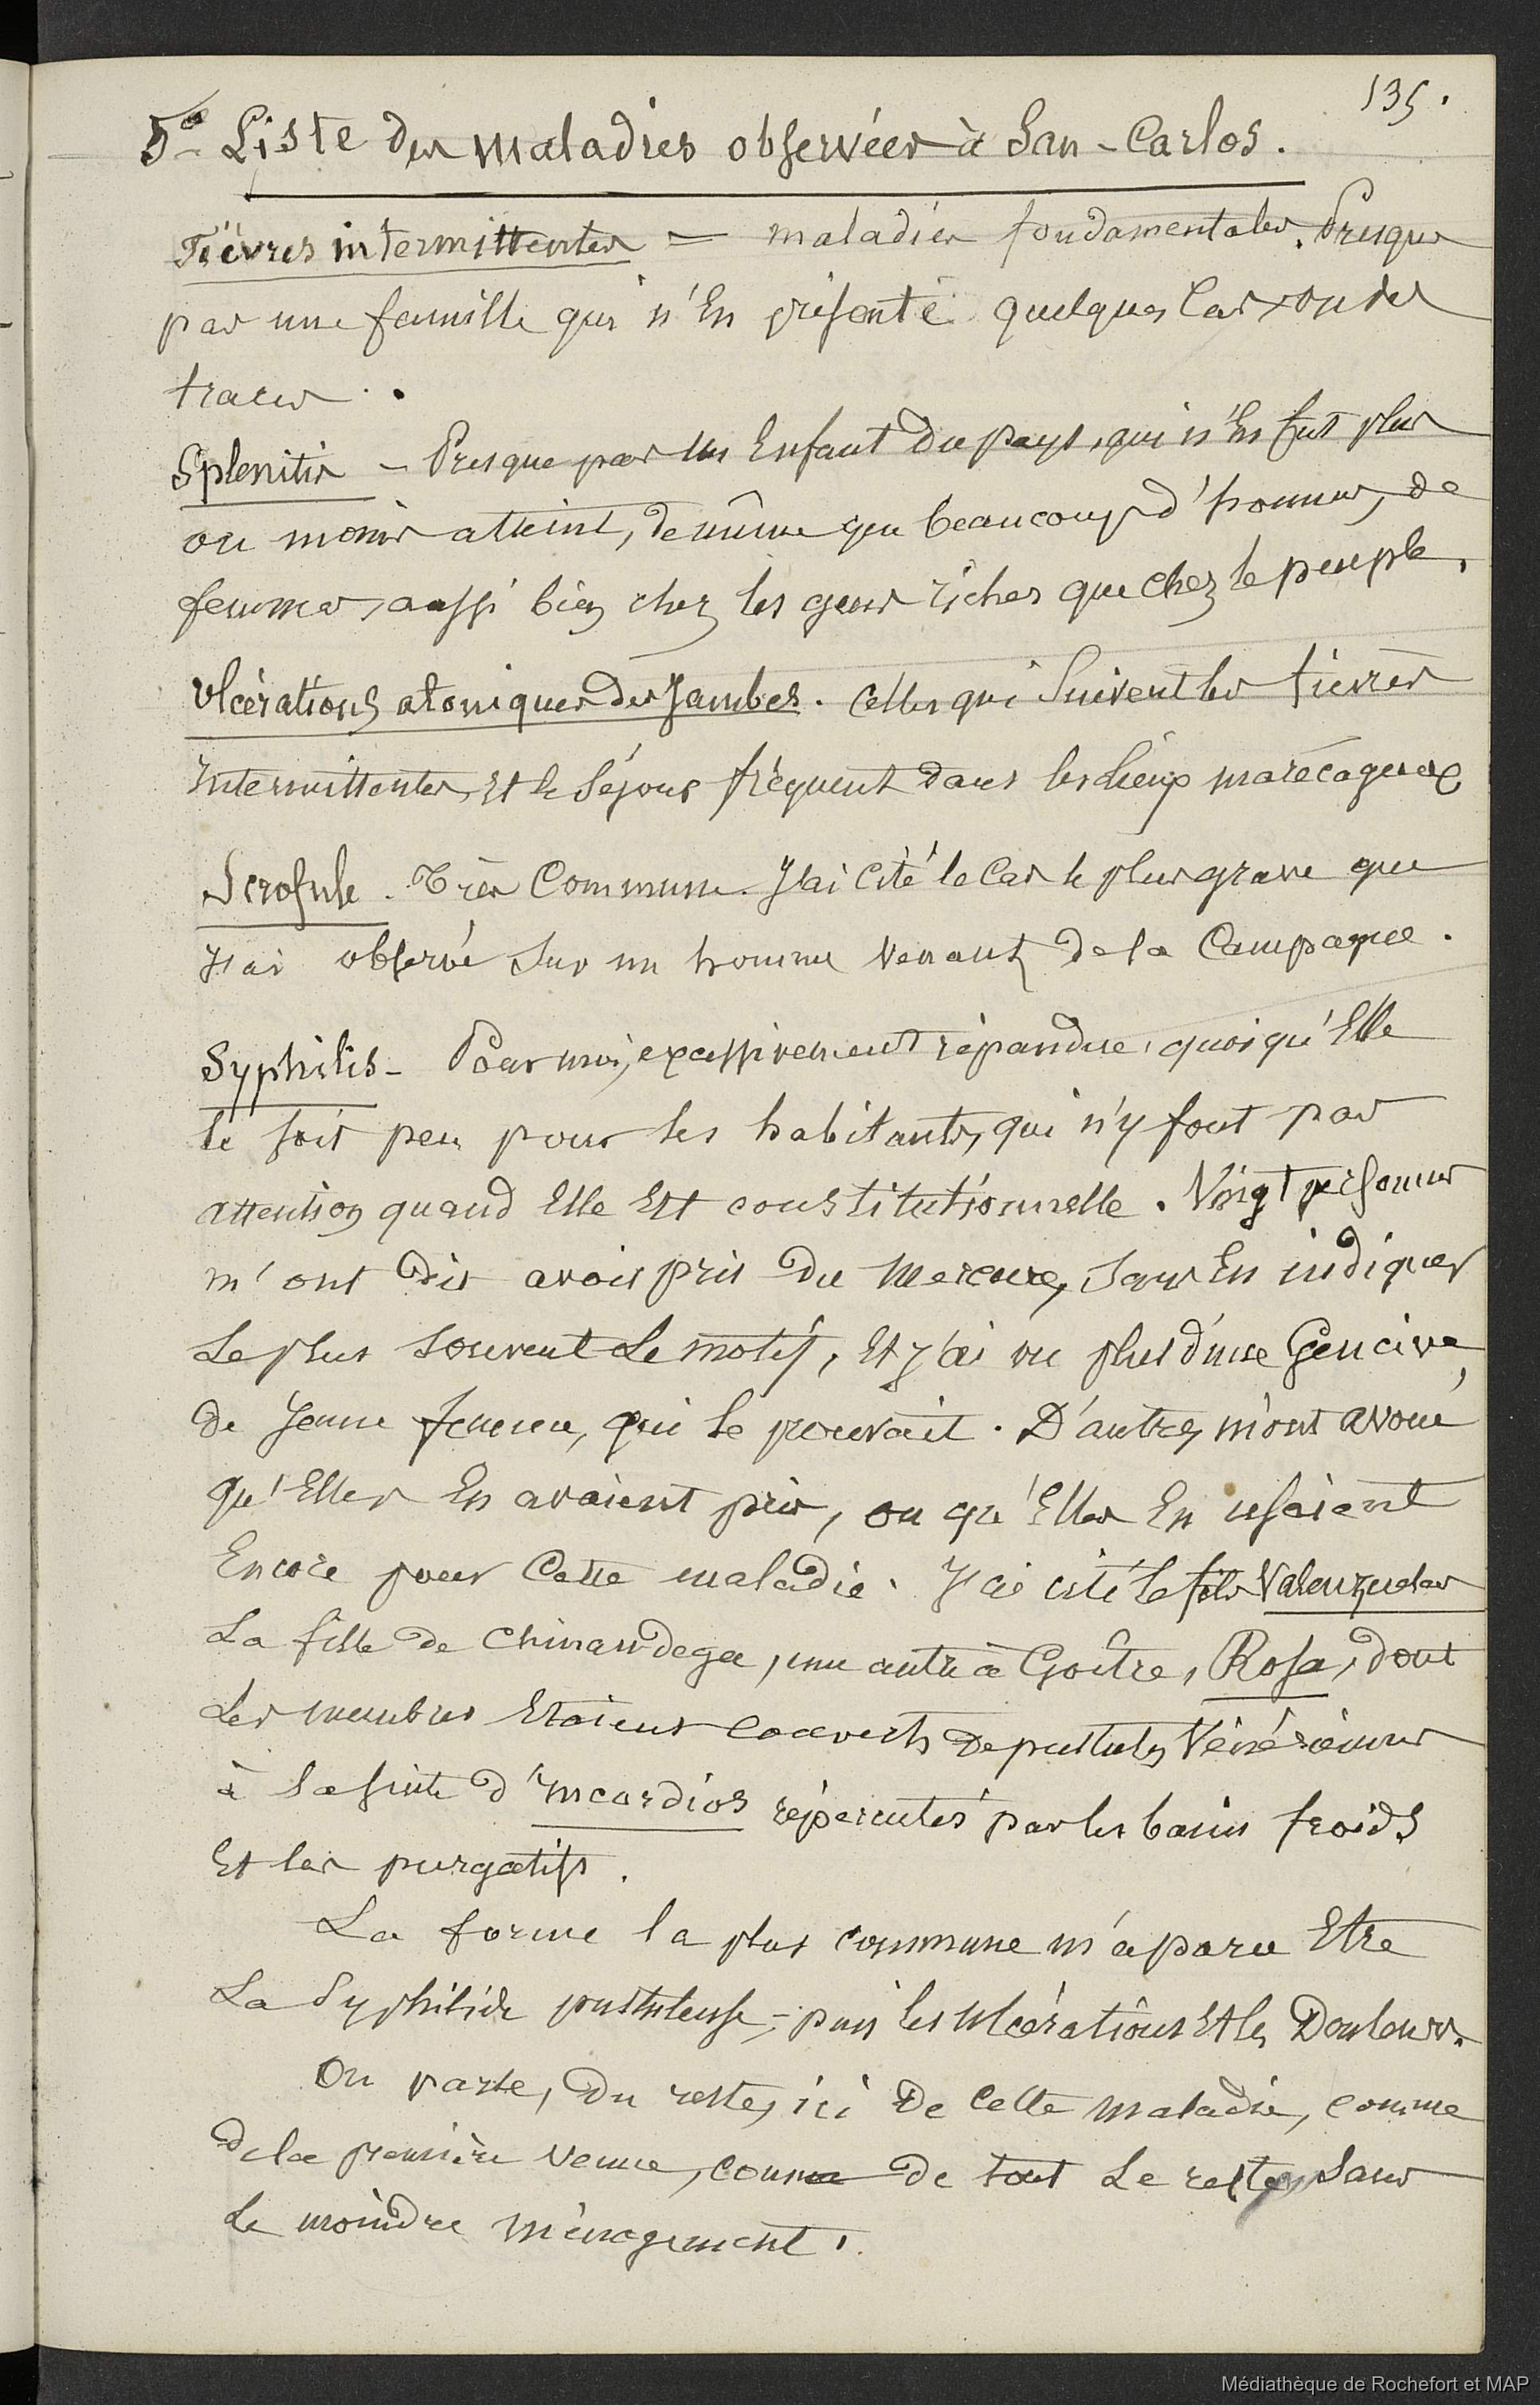 135.
5° Liste des maladies observées à San-Carlos.
Fièvres intermittentes = maladies fondamentales. Presque
pas une famille qui n'en présente quelques cas, ou des
traces.
Splenitis - Presque pas un Enfant du pays, qui n'en fut plus
ou moins atteint, de même que beaucoup d'hommes, de
femmes, aussi bien chez les gens riches que chez le peuple.
Ulcérations atoniques des Jambes. Celles qui suivent les fièvres
Intermittentes, Et le séjour fréquent dans les lieux marécageux
Scrofule. Très Commune. J'ai cité le Cas le plus grave que
J'ai observé sur un homme venant de la Campagne.
Syphilis - Pour moi, excessivement répandue, quoiqu'Elle
le soit peu pour les habitants, qui n'y font pas
attention quand Elle Est constitutionnelle. Vingt personnes
m'ont dit avoir pris du mercure, sans En indiquer
Le plus souvent Le motif, Et j'ai vu plus d'une Gencive,
de Jeune femme, qui le prouvait. D'autres m'ont avoué
qu'Elles En avaient pris, ou qu'Elles En usaient
Encore pour Cette maladie. J'ai cité le fils Valenzuelas
La fille de Chinandega, une autre à Goître, Rosa, dont
Les membres Etaient couverts de pustules Vénériennes
à la suite d'Incordios répercutés par les bains froids
Et les purgatifs.
La forme la plus commune m'a paru Etre
La Syphilide pustuleuse, - puis les Ulcérations Et les Douleurs.
On parle, du reste, ici de Cette maladie, comme
de la première venue, comme de tout Le reste, sans
Le moindre ménagement.
Médiathèque de Rochefort et MAP